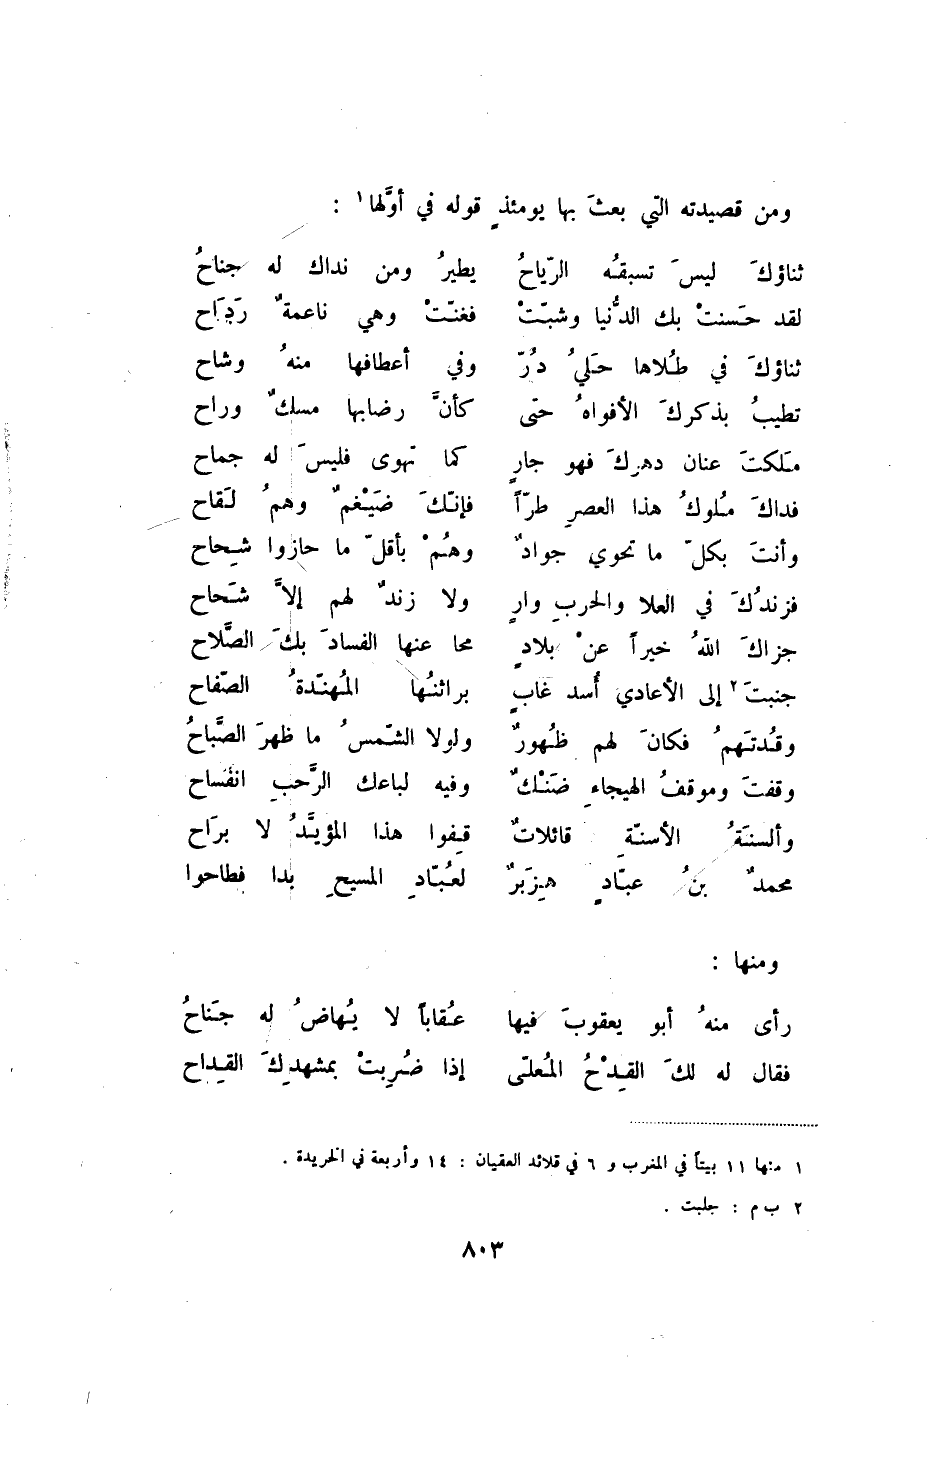 ومن قصيدته التي بعثَ بها يومئذٍ قوله في أوَّلها١ :
ثناؤكَ ليسَ تسبقُه الرّياحُ يطيرُ ومن نداك له جناحُ
لقد حَسنتْ بك الدُّنيا وشبّتْ فغنّتْ وهي ناعمةٌ رَدَاح
ثناؤكَ في طُلاها حَليُ دُرّ وفي أعطافها منهُ وشاح
تطيبُ بذكركَ الأفواهُ حتى كأنَّ رضابها مسكٌ وراح
مَلكتَ عنان دهركَ فهو جارٍ كما تهوى فليسَ له جماح
فداكَ مُلوكُ هذا العصرِ طرّاً فإنّكَ ضَيْغمٌ وهمُ لَقاح
وأنتَ بكلّ ما تحوي جوادٌ وهُمْ بأقلّ ما حازوا شِحاح
فزندُكَ في العلا والحربِ وارٍ ولا زندٌ لهم إلاَّ شَحاح
جزاكَ اللهُ خيراً عنْ بلادٍ محا عنها الفسادَ بكَ الصَّلاح
جنبتَ٢ إلى الأعادي أُسد غابٍ براثنُها المُهنّدةُ الصّفاح
وقُدتَهمُ فكانَ لهم ظُهورٌ ولولا الشّمسُ ما ظهرَ الصَّباحُ
وقفتَ وموقفُ الهيجاءِ ضَنْكٌ وفيه لباعك الرَّحبِ انفساح
وألسنَةُ الأسنّةِ قائلاتٌ قِفوا هذا المؤيَّدُ لا برَاح
محمدٌ بنُ عبّادٍ هِزَبرٌ لعُبّادِ المسيحِ بدا فطاحوا
ومنها :
رأى منهُ أبو يعقوبَ فيها عُقاباً لا يُهاضُ له جَناحُ
فقال له لكَ القِدْحُ المُعلّى إذا ضُرِبتْ بمشهدِكَ القِداح
١ منها ١١ بيتاً في المغرب و ٦ في قلائد العقيان : ١٤ وأربعة في الخريدة .
٢ ب م : جلبت .
٨٠٣